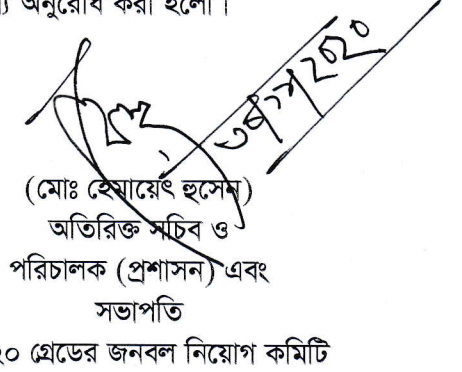 অনুরোধ করা হলো।
(মোঃ হেমায়েৎ হুসেন)
অতিরিক্ত সচিব ও
পরিচালক (প্রশাসন) এবং
সভাপতি
২০ গ্রেডের জনবল নিয়োগ কমিটি